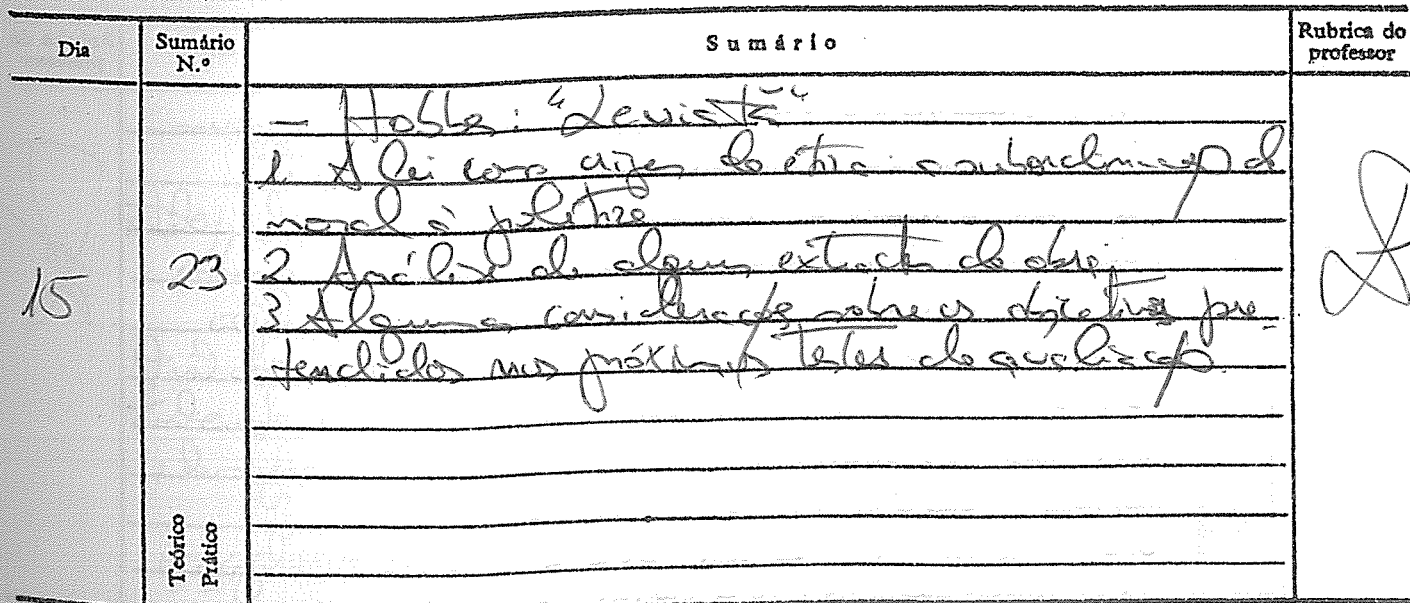 Dia
Sumário N.º
Sumário
Rubrica do professor
15
23
- Hobbes: "Leviatã"
1. A lei como origem da ética: a subordinação da
moral à política
2 Análise de alguns extractos da obra.
3 Algumas considerações sobre os objetivos pre-
tendidos nos próximos testes de avaliação.
Teórico
Prático